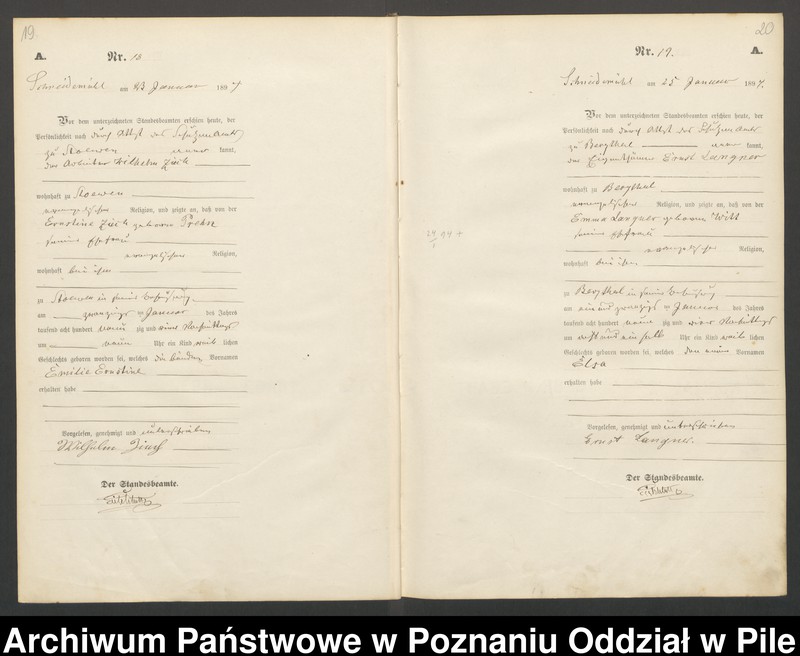 19.
A.
Nr. 18
Schneidemühl am 23 Januar 1894
Vor dem unterzeichneten Standesbeamten erschien heute, der
Persönlichkeit nach durch Attest des Schulzenamts
zu Stoewen kannt,
der Arbeiter Wilhelm
wohnhaft zu Stoewen
evangelischer Religion, und zeigte an, daß von der
Ernestine geborene Prehn
seiner Ehefrau
evangelischer Religion,
wohnhaft bei ihm
zu Stoewen in seiner Behausung
am zwanzigsten Januar des Jahres
tausend acht hundert neun zig und vier Nachmittags
um neun Uhr ein Kind weib lichen
Geschlechts geboren worden sei, welches die beiden Vornamen
Emilie Ernstine
erhalten habe
Vorgelesen, genehmigt und unterschrieben
Wilhelm
Der Standesbeamte.
20
Nr. 19.
A.
Schneidemühl am 25 Januar 1894.
Vor dem unterzeichneten Standesbeamten erschien heute, der
Persönlichkeit nach durch Attest des Schulzenamts
zu Bergthal kannt,
der Eigenthümer Ernst Langner
wohnhaft zu Bergthal
evangelischer Religion, und zeigte an, daß von der
Emma Langner geborene Witt
seiner Ehefrau
evangelischer Religion,
wohnhaft bei ihm
zu Bergthal in seiner Behausung
am ein und zwanzigsten Januar des Jahres
tausend acht hundert neun zig und vier Nachmittags
um Uhr ein Kind weib lichen
Geschlechts geboren worden sei, welches den einen Vornamen
Elsa
erhalten habe
Vorgelesen, genehmigt und unterschrieben
Ernst Langner.
Der Standesbeamte.
Archiwum Państwowe w Poznaniu Oddział w Pile